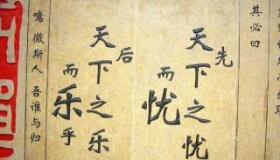 其必曰
先
天下之忧
而忧
后
天下之乐
而乐乎
噫 微斯人 吾谁与归